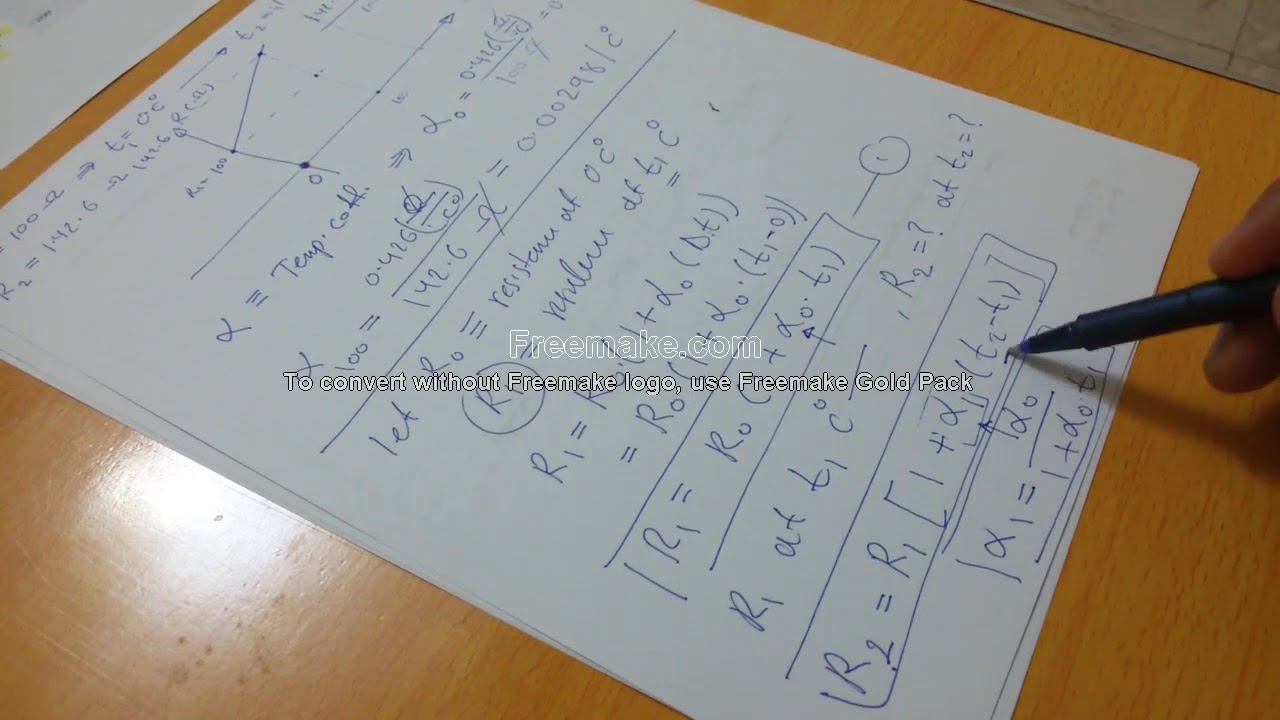 = 100 Ω ⇒ t₁ = 0 c°
R₂ = 142.6 Ω
142.6 R(Ω)
R₁=100
0
100
α ≡ Temp. coff. ⇒ α₀ = 0.426(Ω/c°) / 100 Ω = 0
α100 = 0.426(Ω/c°) / 142.6 Ω = 0.00298/c°
let R₀ ≡ resistem at 0c°
R₁ = at t₁ c°
R₁ = R₀.(1+α₀(Δt))
= R₀(1+α₀.(t₁-0))
R₁ = R₀ (1+α₀.t₁) ①
R₁ at t₁ c°, R₂=? at t₂=?
R₂ = R₁[1+α₁(t₂-t₁)]
α₁ = α₀ / 1+α₀.t₁
Freemake.com
To convert without Freemake logo, use Freemake Gold Pack